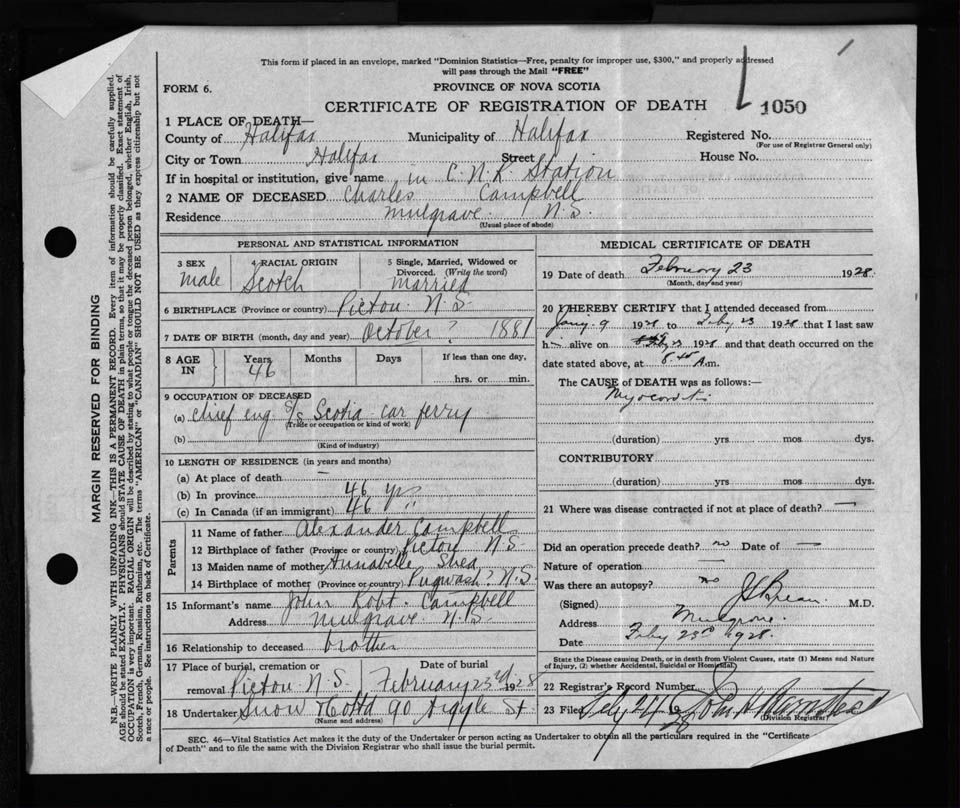 This form if placed in an envelope, marked "Dominion Statistics—Free, penalty for improper use, $300," and properly addressed
will pass through the Mail "FREE"
FORM 6.
PROVINCE OF NOVA SCOTIA
CERTIFICATE OF REGISTRATION OF DEATH
1050
1 PLACE OF DEATH—
County of Halifax Municipality of Halifax Registered No.
(For use of Registrar General only)
City or Town Halifax Street House No.
If in hospital or institution, give name in C.N.R. Station
2 NAME OF DECEASED Charles Campbell
Residence Mulgrave N.S.
(Usual place of abode)
PERSONAL AND STATISTICAL INFORMATION
3 SEX 4 RACIAL ORIGIN 5 Single, Married, Widowed or
Divorced. (Write the word)
Male Scotch Married
6 BIRTHPLACE (Province or country) Pictou N.S.
7 DATE OF BIRTH (month, day and year) October ? 1881
8 AGE IN Years Months Days If less than one day,
46
hrs. or min.
9 OCCUPATION OF DECEASED
(a) chief eng S/S Scotia car ferry
(Trade or occupation or kind of work)
(b)
(Kind of industry)
10 LENGTH OF RESIDENCE (in years and months)
(a) At place of death —
(b) In province 46 yrs
(c) In Canada (if an immigrant) 46 "
Parents
11 Name of father Alexander Campbell
12 Birthplace of father (Province or country) Pictou N.S.
13 Maiden name of mother Annabelle Shea
14 Birthplace of mother (Province or country) Pugwash? N.S.
15 Informant's name John Robt. Campbell
Address Mulgrave N.S.
16 Relationship to deceased brother
17 Place of burial, cremation or Date of burial
removal Pictou N.S. February 23rd 1928
18 Undertaker Snow & Co Ltd 90 Argyle St.
(Name and address)
MEDICAL CERTIFICATE OF DEATH
19 Date of death February 23 1928.
(Month, day and year)
20 I HEREBY CERTIFY that I attended deceased from
Jany. 9 1928 to Feby 23 1928 that I last saw
h alive on 23 1928 and that death occurred on the
date stated above, at 8.45 A.m.
The CAUSE of DEATH was as follows:—
Myocarditis
(duration) yrs mos dys.
CONTRIBUTORY
(duration) yrs mos dys.
21 Where was disease contracted if not at place of death? —
Did an operation precede death? no Date of —
Nature of operation —
Was there an autopsy? no
(Signed) M.D.
Address Mulgrave
Date Feby 23rd 1928.
State the Disease causing Death, or in death from Violent Causes, state (1) Means and Nature
of Injury, (2) whether Accidental, Suicidal or Homicidal
22 Registrar's Record Number
23 Filed Feby 24 28 John H.
(Division Registrar)
SEC. 46—Vital Statistics Act makes it the duty of the Undertaker or person acting as Undertaker to obtain all the particulars required in the "Certificate
of Death" and to file the same with the Division Registrar who shall issue the burial permit.
MARGIN RESERVED FOR BINDING
N.B.—WRITE PLAINLY WITH UNFADING INK—THIS IS A PERMANENT RECORD. Every item of information should be carefully supplied.
AGE should be stated EXACTLY. PHYSICIANS should STATE CAUSE OF DEATH in plain terms, so that it may be properly classified. Exact statement of
OCCUPATION is very important. RACIAL ORIGIN will be described by stating to what people or tongue the deceased person belonged, whether English, Irish,
Scotch, French, German, Russian, Ruthenian, etc. The terms "AMERICAN" or "CANADIAN" SHOULD NOT BE USED as they express citizenship but not
a race or people. See instructions on back of Certificate.